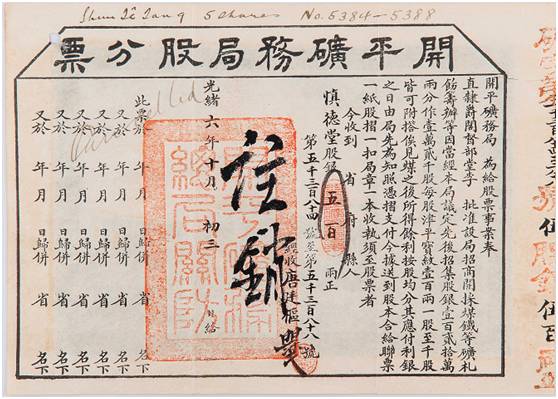 Shun Tê Tang 5 Shares No. 5384-5388
開平礦務局股分票
開平礦務局 為給股票事案奉
直隸爵閣督部堂李 批准設局招商開採煤鐵等礦札
飭籌辦等因當經本局議定先後招集股銀壹百貳拾萬
兩分作壹萬貳千股每股津平寶紋壹百兩一股至千股
皆可附搭俟見煤之後所得餘利按股均分其應付利銀
之日由局先為知照憑摺支付今據送到股本合給聯票
一紙股摺一扣局章一本收執須至股票者
今收到 省 府 縣人
慎德堂股銀 五百 兩正
第五千三百八十四號至第五千三百八十八號
總收唐廷樞
註銷
光緒六年十月初三日給
Cancelled
此票於 年 月 日歸併 省 名下
又於 年 月 日歸併 省 名下
又於 年 月 日歸併 省 名下
又於 年 月 日歸併 省 名下
又於 年 月 日歸併 省 名下